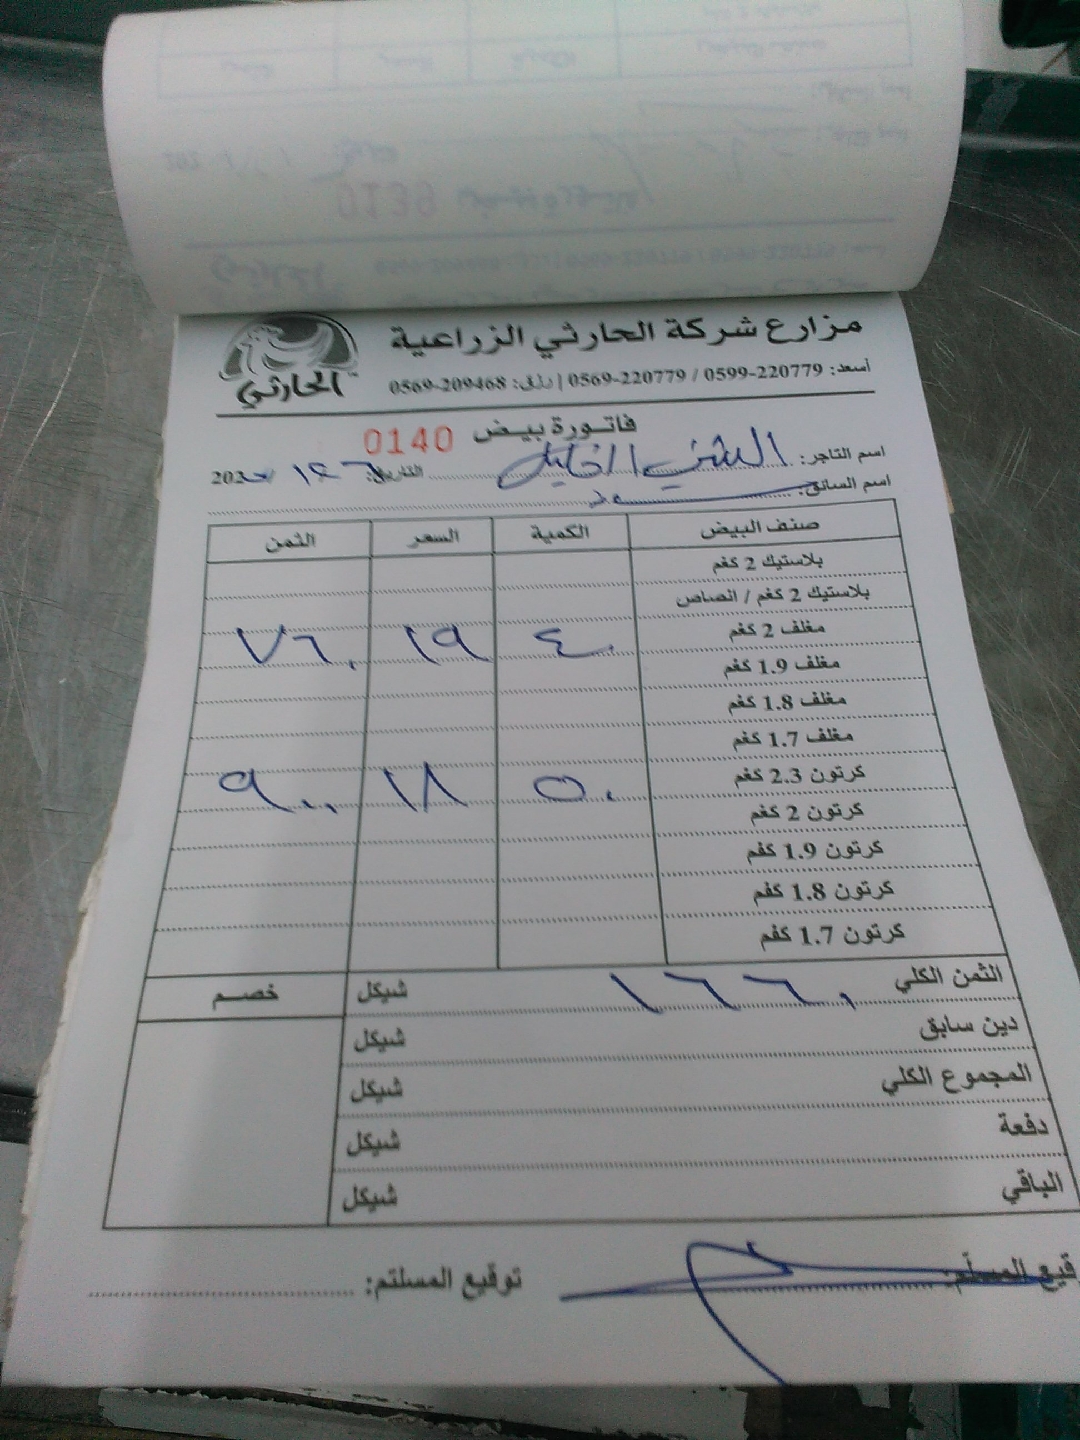 مزارع شركة الحارثي الزراعية
الحارثي
أسعد: 0599-220779 / 0569-220779 | رزق: 0569-209468
فاتورة بيض 0140
اسم التاجر: الخليل التاريخ: 202
اسم السائق:
صنف البيض الكمية السعر الثمن
بلاستيك 2 كغم
بلاستيك 2 كغم / انصاص
مغلف 2 كغم ٤٠ ١٩ ٧٦٠
مغلف 1.9 كغم
مغلف 1.8 كغم
مغلف 1.7 كغم
كرتون 2.3 كغم ٥٠ ١٨ ٩٠٠
كرتون 2 كغم
كرتون 1.9 كغم
كرتون 1.8 كغم
كرتون 1.7 كغم
الثمن الكلي ١٦٦٠ شيكل خصم
دين سابق شيكل
المجموع الكلي شيكل
دفعة شيكل
الباقي شيكل
قيع المسلّم: توقيع المستلم: